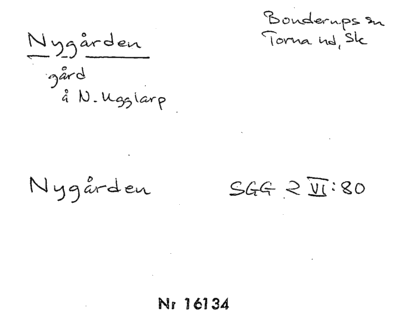 Nygården
Bonderups sn
Torna hd, Sk
gård
å N. Ugglarp
Nygården SGG 2 VI:80
Nr 16134